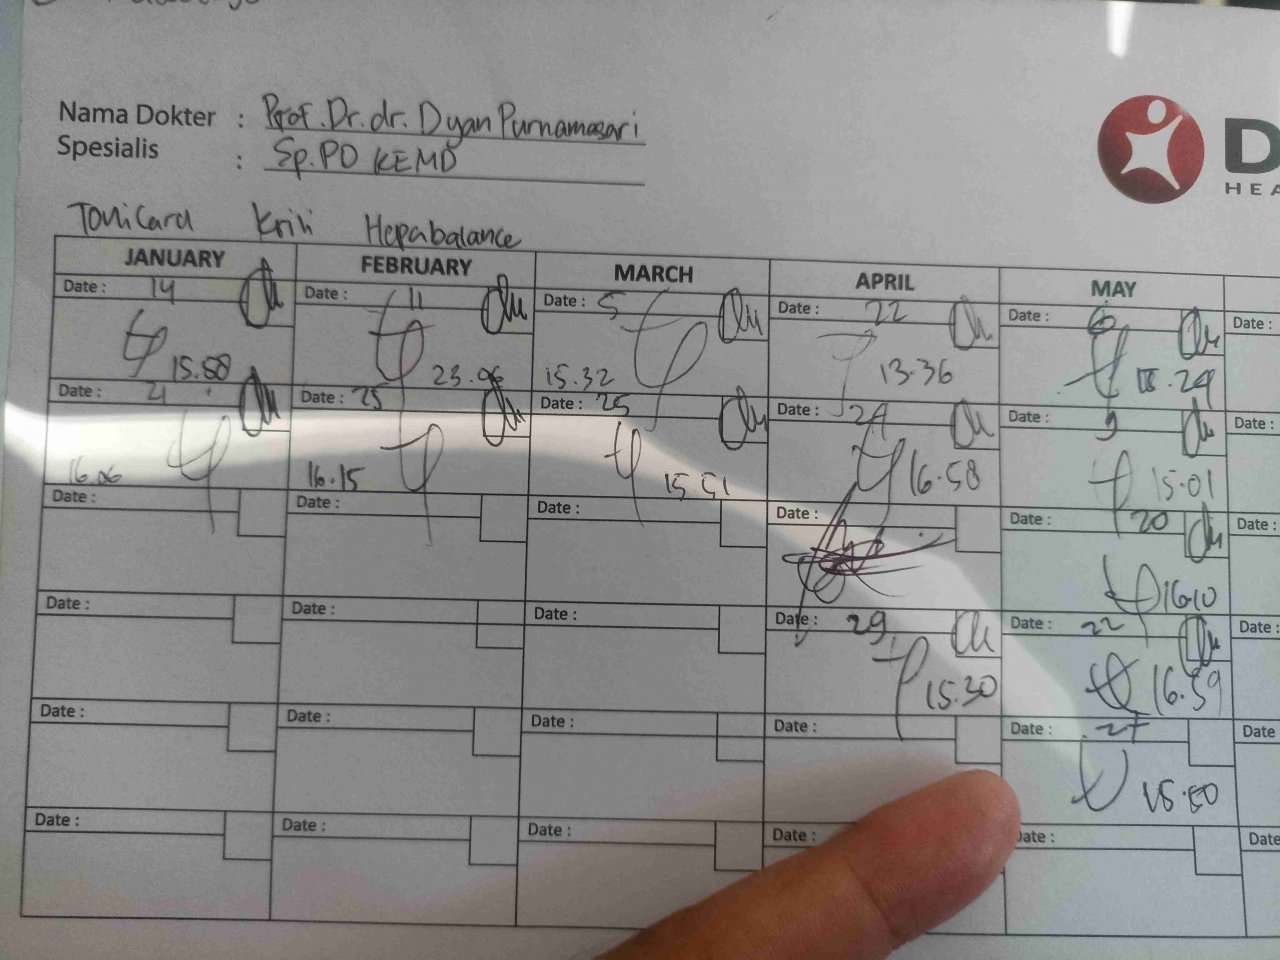 Nama Dokter : Prof. Dr. dr. Dyan Purnamasari
Spesialis : Sp.PD KEMD
Tonicard Krili Hepabalance
JANUARY FEBRUARY MARCH APRIL MAY
Date : 14 Date : 11 Date : 5 Date : 22 Date : 6 Date :
15.58 23.06 15.32 13.36 18.29
Date : 21 Date : 25 Date : 25 Date : 24 Date : 9 Date :
16.06 16.15 15.51 16.58 15.01
Date : Date : Date : Date : Date : 20 Date :
16.10
Date : Date : Date : Date : 29 Date : 22 Date :
15.30 16.59
Date : Date : Date : Date : Date : 27 Date
15.50
Date : Date : Date : Date : Date : Date
D
HEA